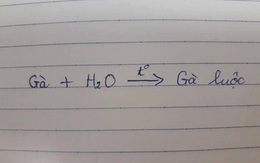 Gà + H₂O $\xrightarrow{t^o}$ Gà luộc